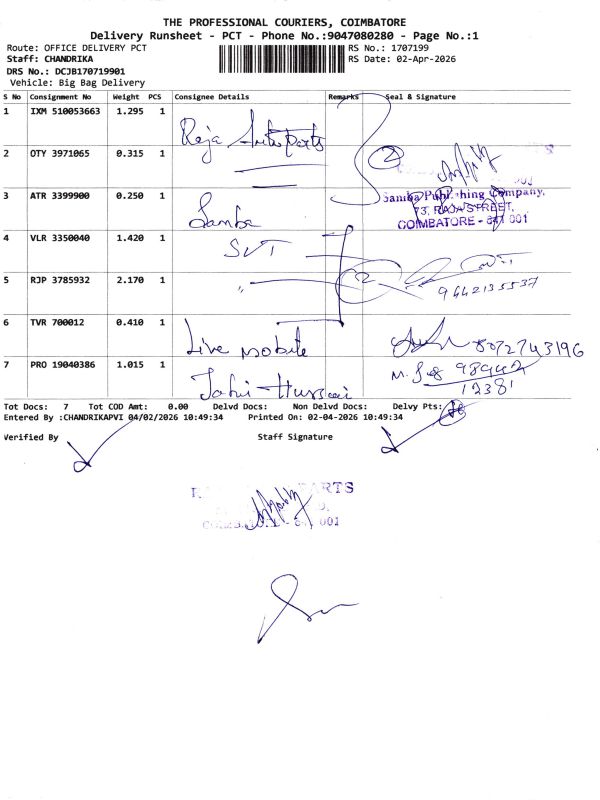 THE PROFESSIONAL COURIERS, COIMBATORE
Delivery Runsheet - PCT - Phone No.:9047080280 - Page No.:1
Route: OFFICE DELIVERY PCT
RS No.: 1707199
Staff: CHANDRIKA
RS Date: 02-Apr-2026
DRS No.: DCJB170719901
Vehicle: Big Bag Delivery
S No Consignment No Weight PCS Consignee Details Remarks Seal & Signature
1 IXM 510053663 1.295 1 Raja Auto Parts
2 OTY 3971065 0.315 1
3 ATR 3399900 0.250 1 Samba
Samba Publishing Company,
73, RAJA STREET,
COIMBATORE - 641 001
4 VLR 3350040 1.420 1 SVT
5 RJP 3785932 2.170 1 " 9442135537
6 TVR 700012 0.410 1 Live mobile 8072743196
7 PRO 19040386 1.015 1 98942
12381
Tot Docs: 7 Tot COD Amt: 0.00 Delvd Docs: Non Delvd Docs: Delvy Pts:
Entered By :CHANDRIKAPVI 04/02/2026 10:49:34 Printed On: 02-04-2026 10:49:34
Verified By Staff Signature
PARTS
001